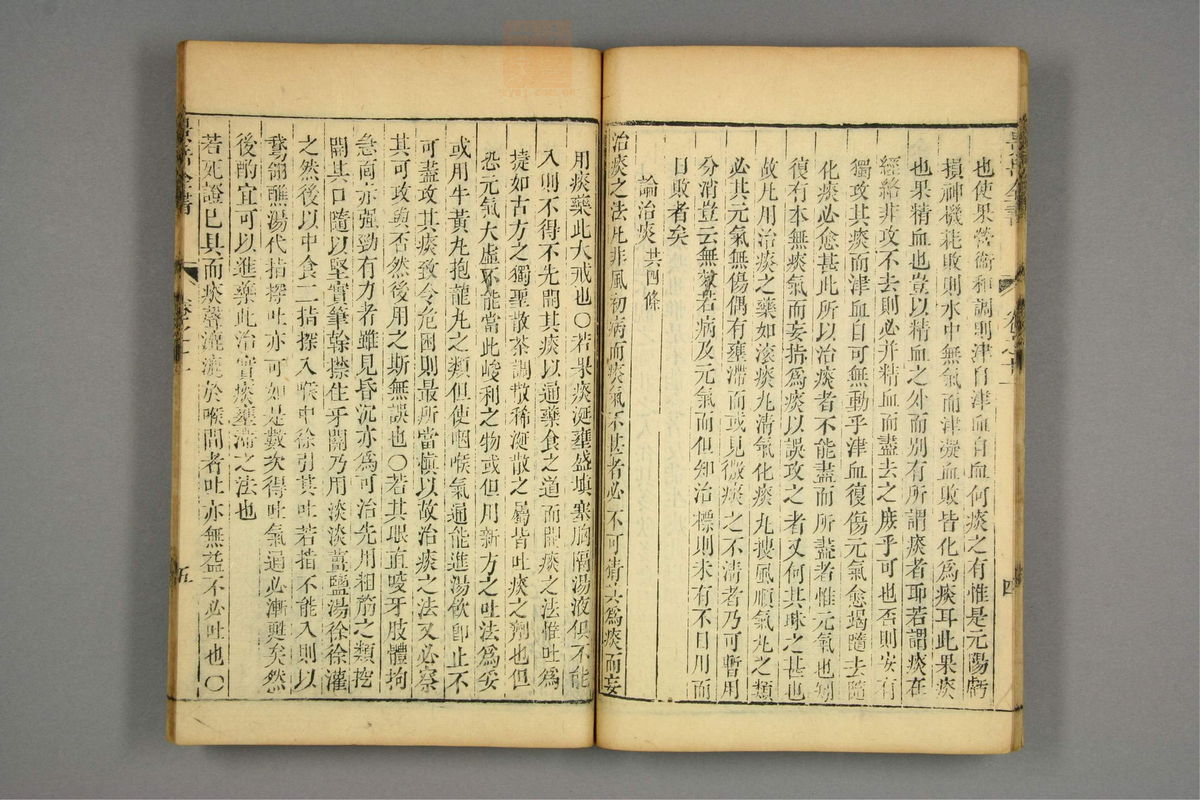 也使果營衛和調則津自津血自血何痰之有惟是元陽虧
損神機耗敗則水中無氣而津凝血敗皆化爲痰耳此果痰
也果精血也豈以精血之外而別有所謂痰者耶若謂痰在
經絡非攻不去則必并精血而盡去之庶乎可也否則安有
獨攻其痰而津血自可無動乎津血復傷元氣愈竭隨去隨
化痰必愈甚此所以治痰者不能盡而所盡者惟元氣也矧
復有本無痰氣而妄指爲痰以誤攻之者又何其昧之甚也
故凡用治痰之藥如滚痰丸清氣化痰丸搜風順氣丸之類
必其元氣無傷偶有壅滯而或見微痰之不清者乃可暫用
分消豈云無效若病及元氣而但知治標則未有不日用而
日敗者矣
論治痰共四條
治痰之法凡非風初病而痰氣不甚者必不可猜其爲痰而妄
用痰藥此大戒也〇若果痰涎壅盛填塞胸膈湯液俱不能
入則不得不先開其痰以通藥食之道而開痰之法惟吐爲
捷如古方之獨聖散茶調散稀涎散之屬皆吐痰之劑也但
恐元氣大虛不能當此峻利之物或但用新方之吐法爲妥
或用牛黄丸抱龍丸之類但使咽喉氣通能進湯飲即止不
可盡攻其痰致令危困則最所當慎以故治痰之法又必察
其可攻與否然後用之斯無誤也〇若其眼直咬牙肢體拘
急面赤强勁有力者雖見昏沉亦爲可治先用粗筯之類挖
開其口隨以堅實筆幹撩住牙關乃用淡淡薑鹽湯徐徐灌
之然後以中食二指探入喉中徐引其吐若指不能入則以
鵞翎蘸湯代指探吐亦可如是數次得吐氣通必漸甦矣然
後酌宜可以進藥此治實痰壅滯之法也
若死證已具而痰聲漉漉於喉間者吐亦無益不必吐也〇
五
四